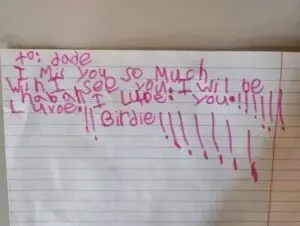 to: dade
I Mis you so Much
Wih I see you. I wil be
habah I Luve. you.!!!!!!
Luvoe.!! Birdie!!!!!!!!